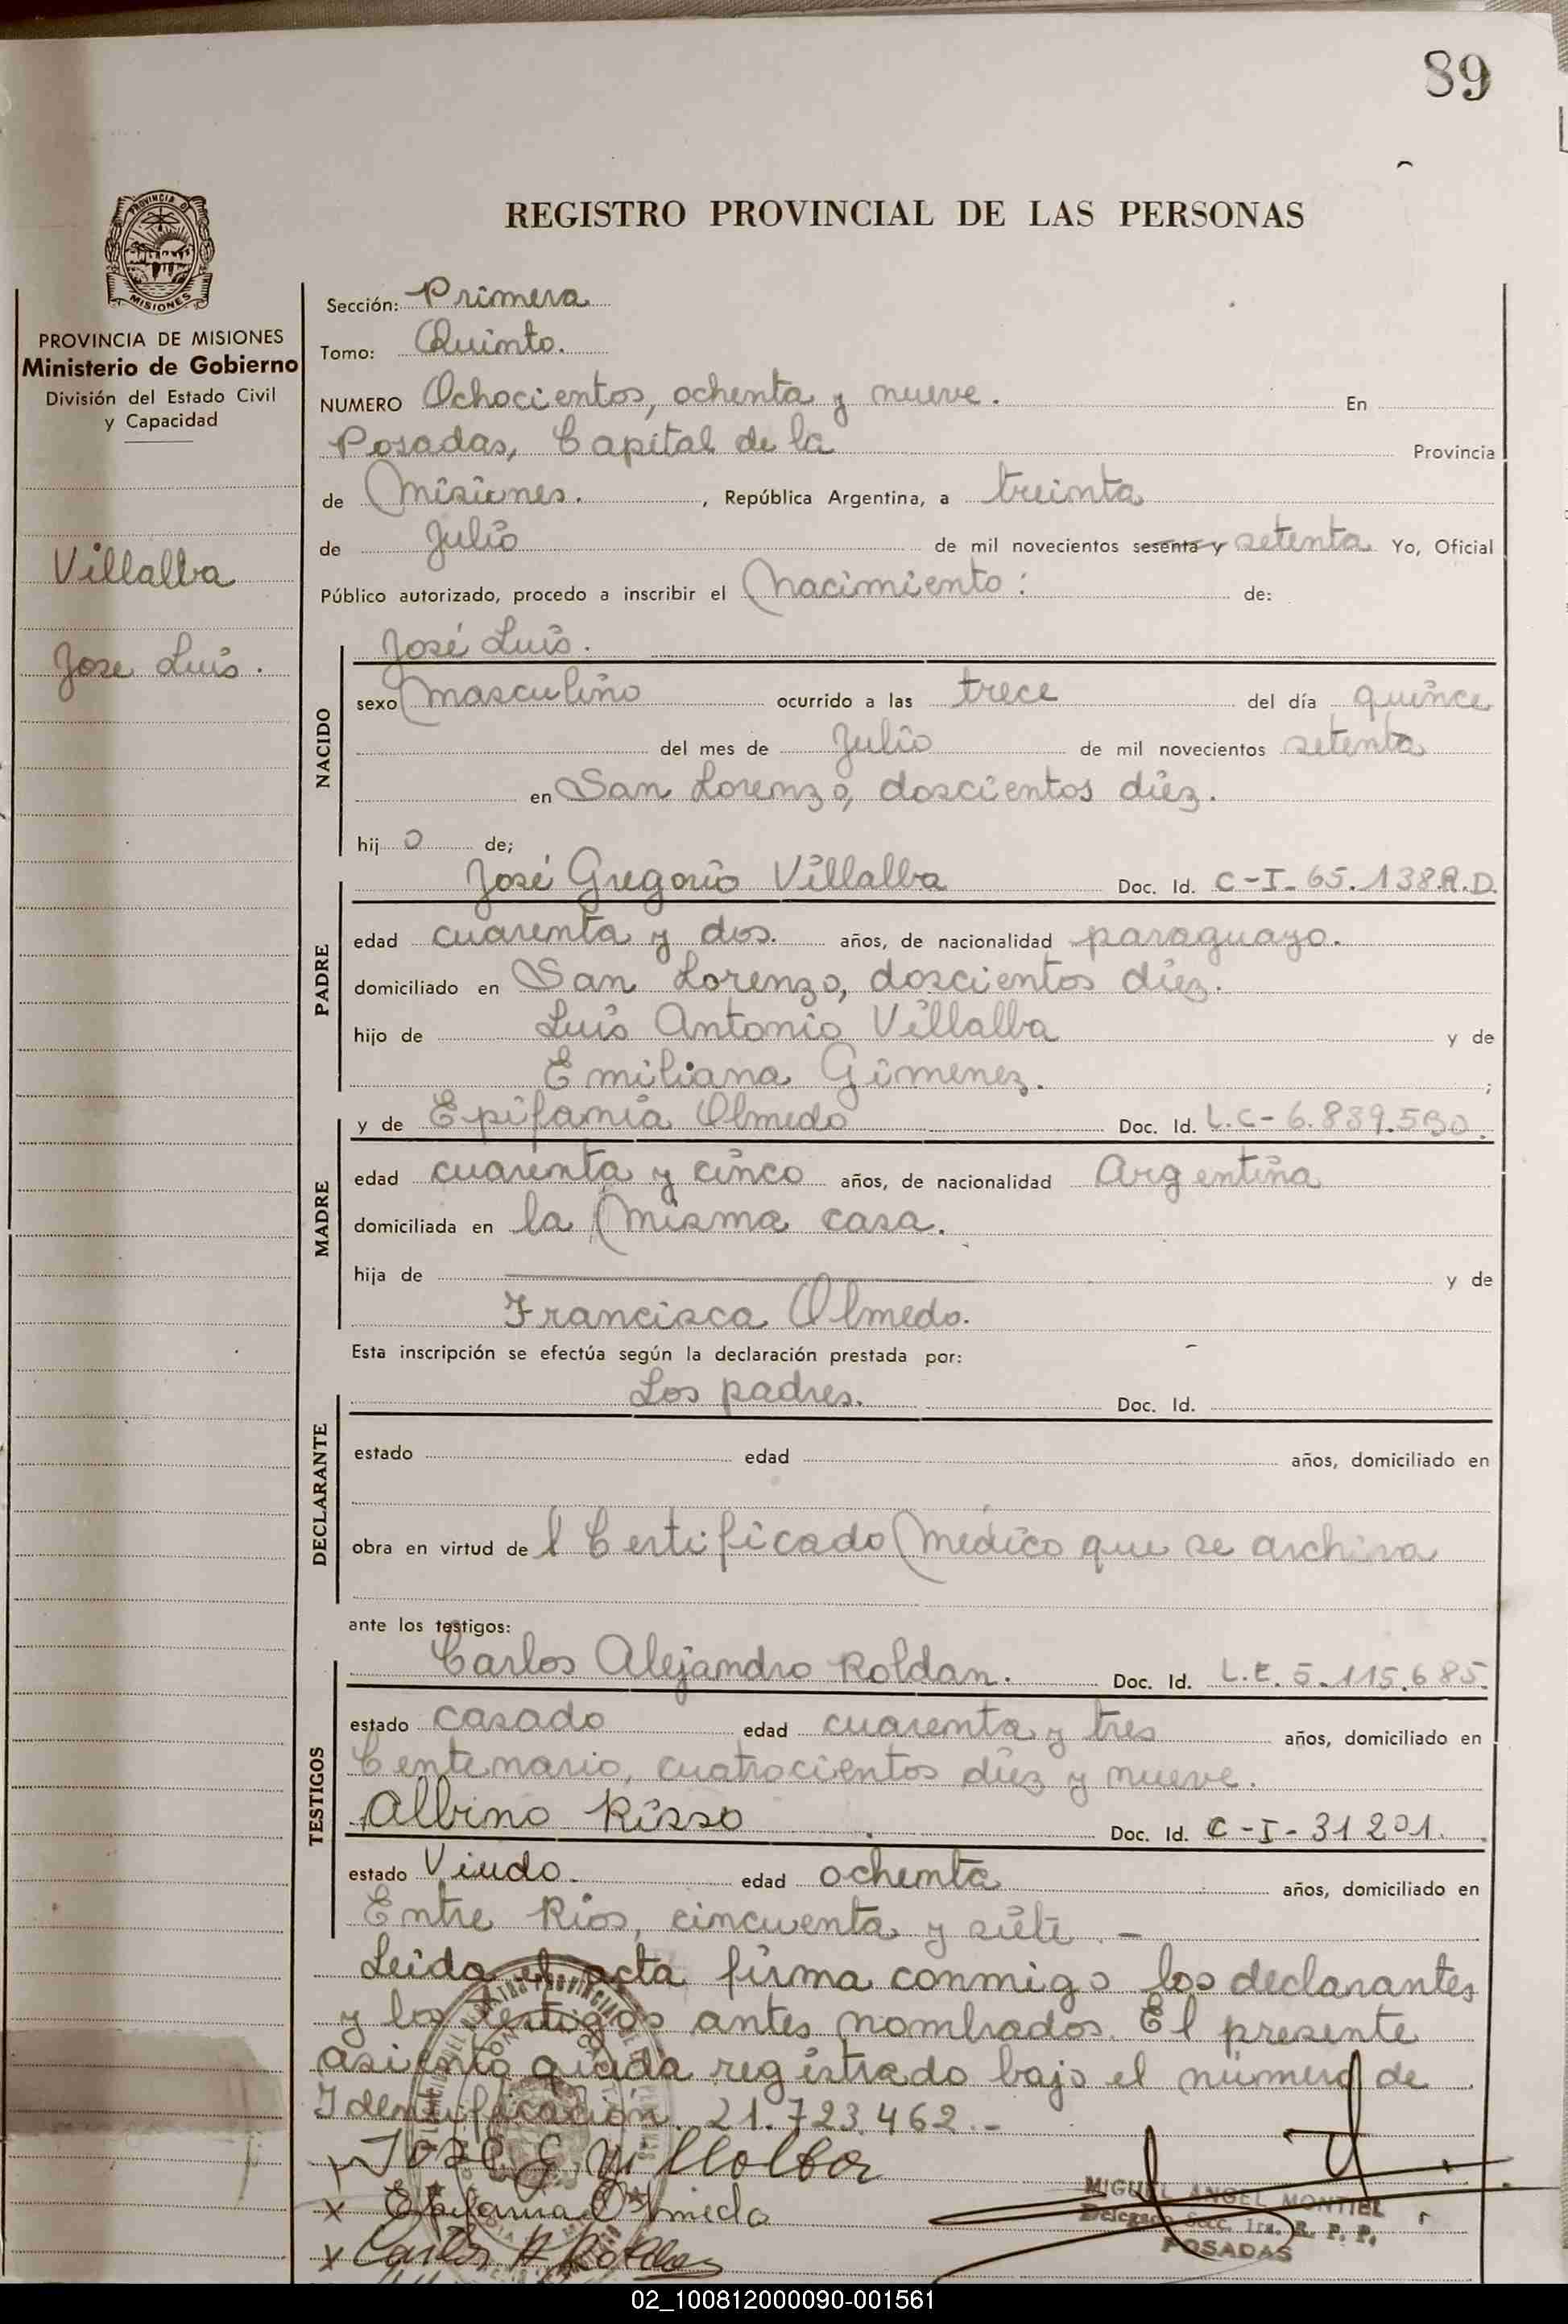 89
REGISTRO PROVINCIAL DE LAS PERSONAS
PROVINCIA DE
MISIONES
PROVINCIA DE MISIONES
Ministerio de Gobierno
División del Estado Civil
y Capacidad
Villalba
Jose Luis.
Sección: Primera
Tomo: Quinto.
NUMERO Ochocientos, ochenta y nueve. En
Posadas, Capital de la Provincia
de Misiones. , República Argentina, a treinta
de Julio de mil novecientos sesenta y setenta Yo, Oficial
Público autorizado, procedo a inscribir el Nacimiento: de:
NACIDO
José Luis.
sexo masculino ocurrido a las trece del día quince
del mes de Julio de mil novecientos setenta
en San Lorenzo, doscientos diez.
hij o de;
PADRE
José Gregorio Villalba Doc. Id. C-I-65.138.R.D.
edad cuarenta y dos. años, de nacionalidad paraguayo.
domiciliado en San Lorenzo, doscientos diez.
hijo de Luis Antonio Villalba y de
Emiliana Gimenez. ;
MADRE
y de Epifania Olmedo Doc. Id. L.C-6.839.530.
edad cuarenta y cinco años, de nacionalidad Argentina
domiciliada en la misma casa.
hija de y de
Francisca Olmedo.
Esta inscripción se efectúa según la declaración prestada por:
DECLARANTE
Los padres. Doc. Id.
estado edad años, domiciliado en
obra en virtud de l Certificado Médico que se archiva
ante los testigos:
TESTIGOS
Carlos Alejandro Roldan. Doc. Id. L.E. 5.115.685.
estado casado edad cuarenta y tres años, domiciliado en
Centenario, cuatrocientos diez y nueve.
Albino Risso Doc. Id. C-I-31201.
estado Viudo. edad ochenta años, domiciliado en
Entre Rios, cincuenta y siete. -
Leida el acta firma conmigo los declarantes
y los testigos antes nombrados. El presente
asiento queda registrado bajo el número de
Identificación. 21.723.462.-
Jose G. Villalba
x Epifania Olmedo
x Carlos A Roldan
MIGUEL ANGEL MONTIEL
Delegado Secc. 1ra. R. P. P.
POSADAS
02_100812000090-001561